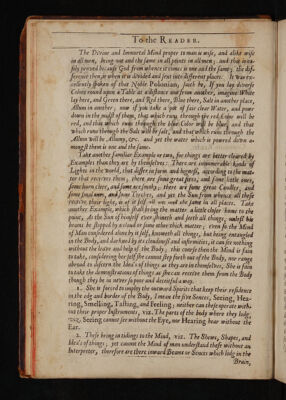 To the READER.
The Divine and Immortal Mind proper to man is wise, and alike wise
in all men, being one and the same in all points in all men; and this is ea-
sily proved because God from whence it comes is one and the same; the dif-
ference then is when it is divided and sent into different places. It was ex-
cellently spoken of that Noble Polonian, saith he, If you lay diverse
Colors round upon a Table at a distance one from another, imagine White
lay here, and Green there, and Red there, Blue there, Salt in another place,
Allum in another; now if you take a pot of fair clear Water, and power
down in the midst of them, that which runs through the red, Color will be
red, and that which runs through the blue Color will be blue, and that
which runs through the Salt will be salt, and that which runs through the
Allum will be Allumy, &c. and yet the water which is powred down a-
mongst them is one and the same.
Take another familiar Example or two, for things are better cleared by
Examples than they are by themselves: There are innumerable kinds of
Lights in the World, that differ in form and bigness, according to the mat-
ter that receives them; there are some great fires, and some little ones,
some burn cleer, and some not smoky; there are some great Candles, and
some small ones, and some Torches, and yet the Sun from whence all these
receive their light, is of it self all one and the same in all places. Take
another Example, which shall bring the matter a little closer home to the
point, As the Sun of himself ever shineth and seeth all things, unless his
beams be stopped by a cloud or some other thick matter; even so the Mind
of Man considered alone by it self, knoweth all things, but being entangled
in the Body, and darkned by its clouds and infirmities, it can see nothing
without the leave and help of the Body; this course then the Mind is fain
to take, considering her self she cannot step forth out of the Body, nor range
abroad to discern the Idea's of things as they are in themselves; She is fain
to take the demonstrations of things as she can receive them from the Body
though they be in never so poor and deceitful a way.
1. She is forced to imploy the inward Spirits that keep their residence
in the edg and border of the Body, I mean the five Sences, Seeing, Hea-
ring, Smelling, Tasting, and Feeling; neither can these operate with-
out their proper Instruments, viz. The parts of the body where they lodg,
viz. Seeing cannot see without the Eye, nor Hearing hear without the
Ear.
2. These bring in tidings to the Mind, viz. The Shews, Shapes, and
Idea's of things; yet cannot the Mind of man understand these without an
Interpreter, therefore are there inward Beams or Sences which lodg in the
Brain,